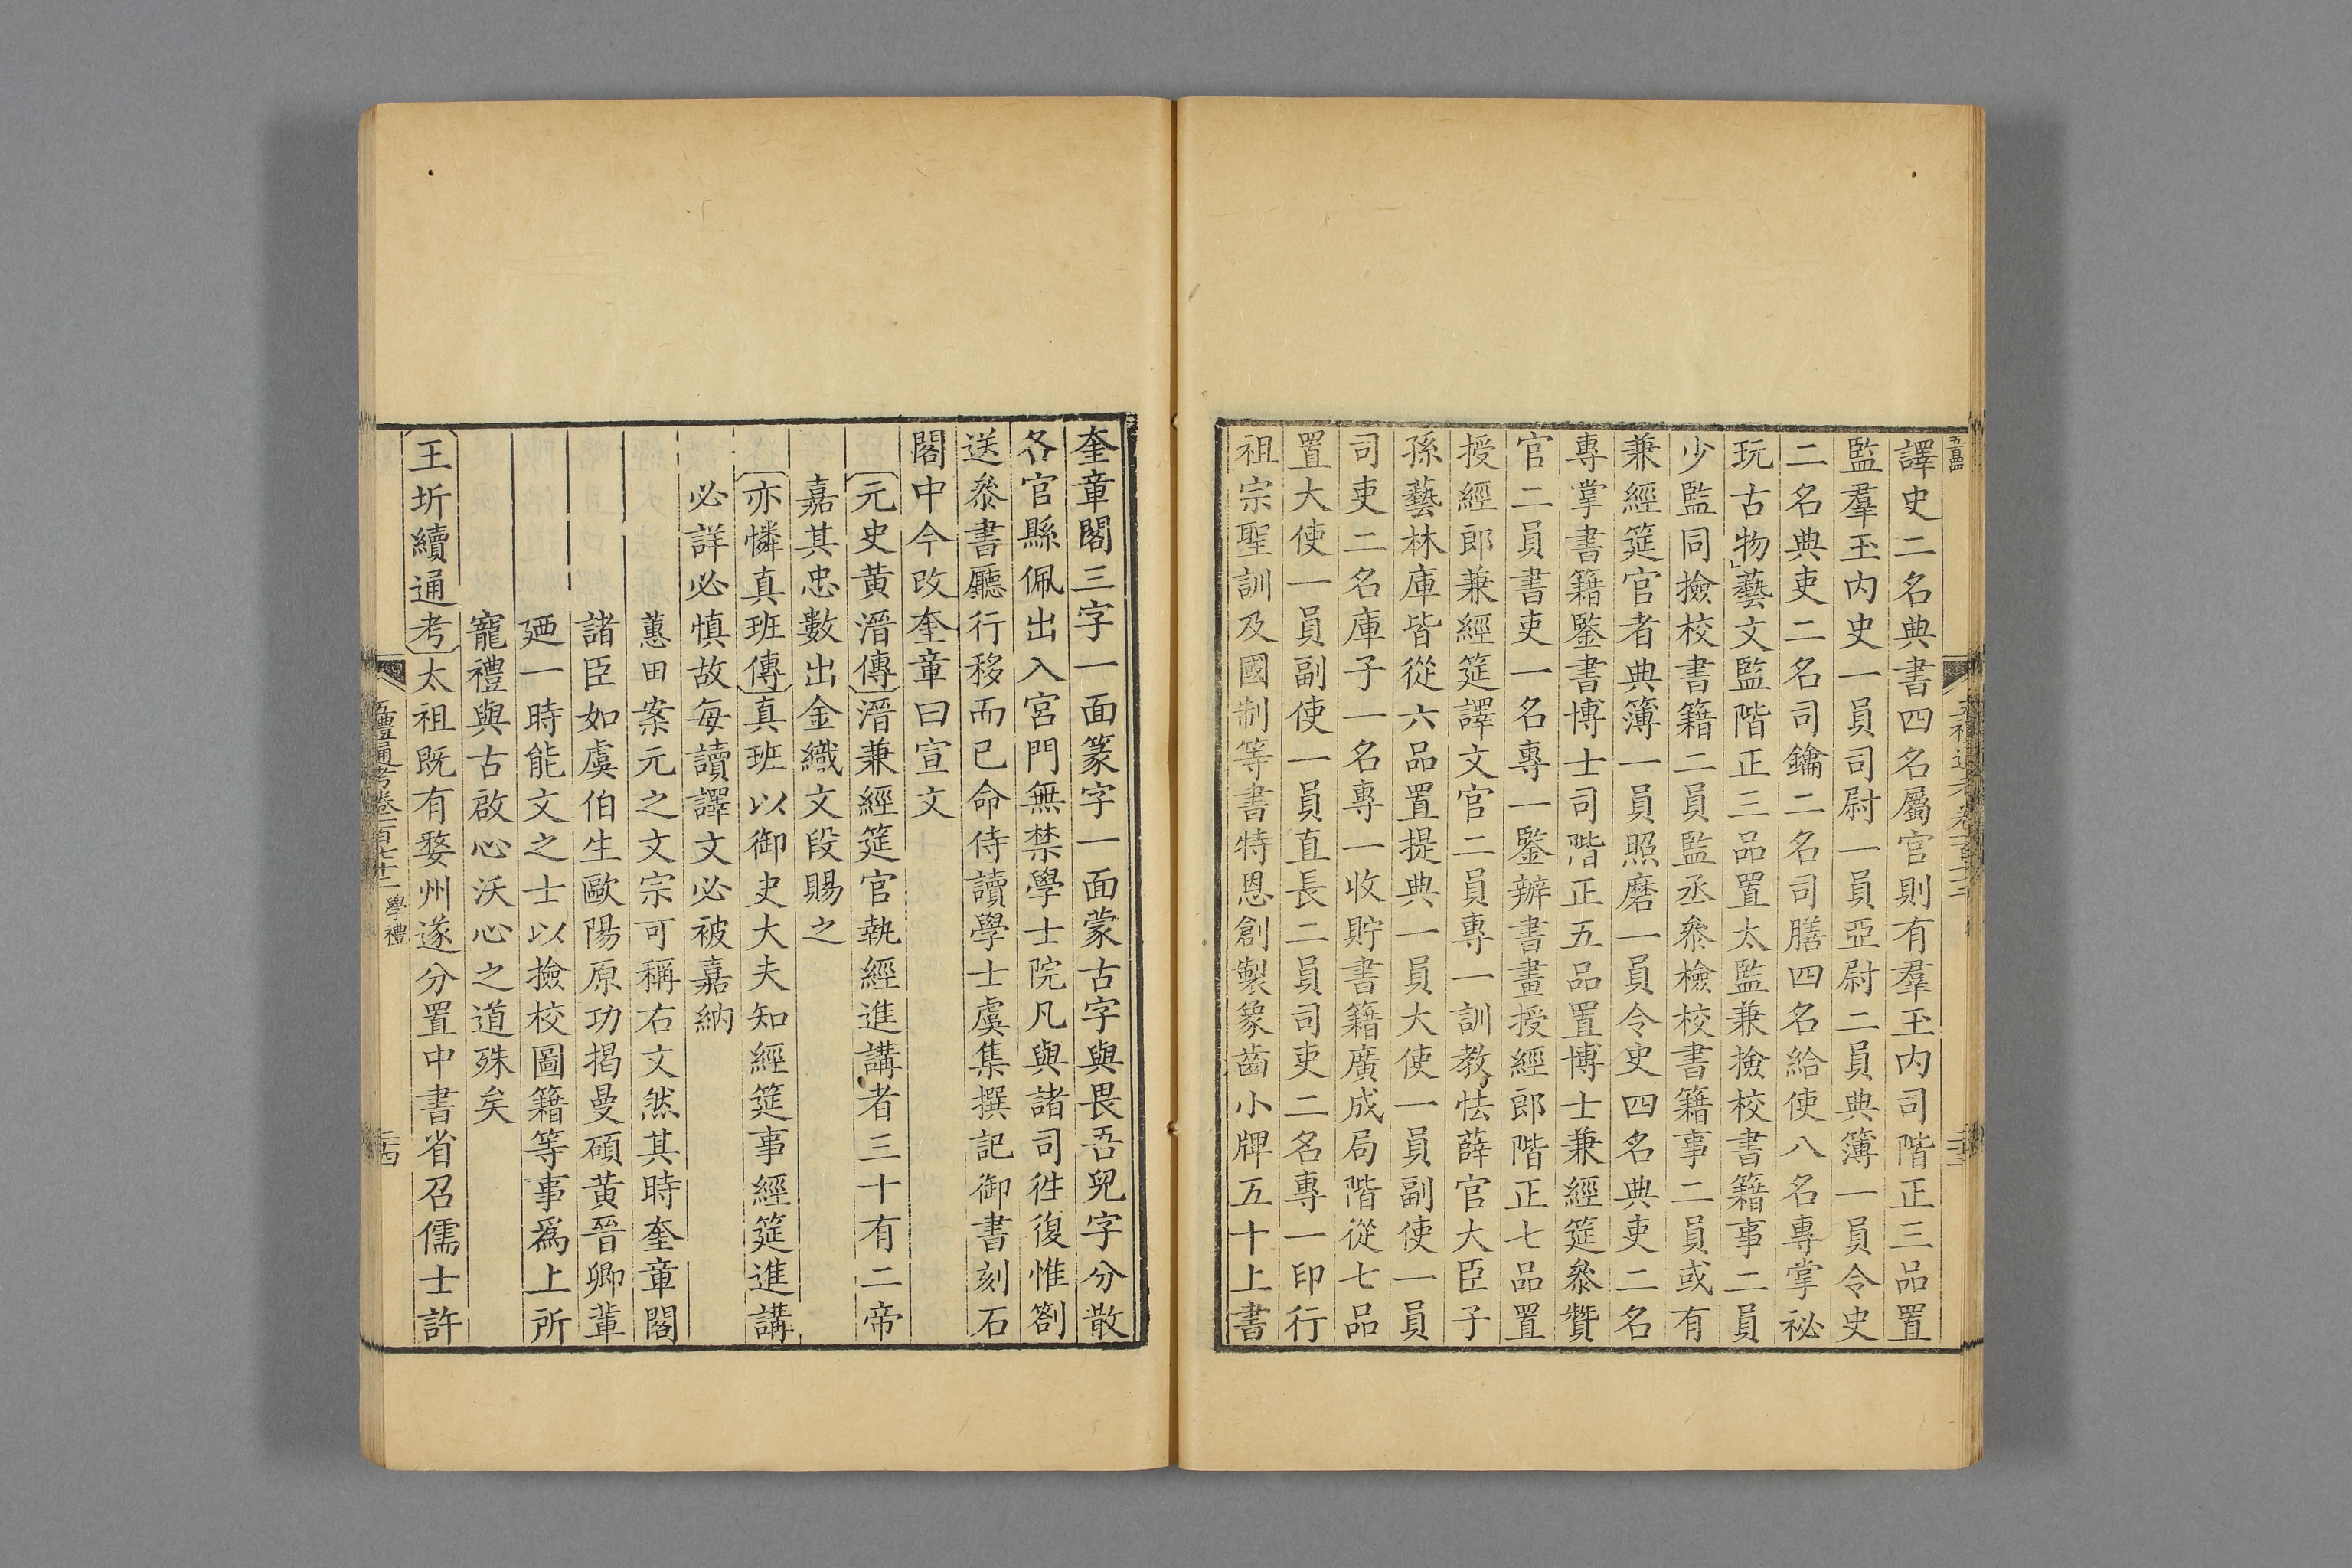 譯史二名典書四名屬官則有羣玉内司階正三品置
監羣玉内史一員司尉一員亞尉二員典簿一員令史
二名典吏二名司鑰二名司膳四名給使八名專掌祕
玩古物藝文監階正三品置太監兼撿校書籍事二員
少監同撿校書籍二員監丞叅檢校書籍事二員或有
兼經筵官者典簿一員照磨一員令史四名典吏二名
專掌書籍鑒書博士司階正五品置博士兼經筵叅贊
官二員書吏一名專一鑒辦書畫授經郎階正七品置
授經郎兼經筵譯文官二員專一訓教怯薛官大臣子
孫藝林庫皆從六品置提典一員大使一員副使一員
司吏二名庫子一名專一收貯書籍廣成局階從七品
置大使一員副使一員直長二員司吏二名專一印行
祖宗聖訓及國制等書特恩創製象齒小牌五十上書
奎章閣三字一面篆字一面蒙古字與畏吾兒字分散
各官縣佩出入宮門無禁學士院凡與諸司徃復惟劄
送叅書廳行移而已命侍讀學士虞集撰記御書刻石
閣中今改奎章曰宣文
元史黄溍傳溍兼經筵官執經進講者三十有二帝
嘉其忠數出金織文段賜之
亦憐真班傳真班以御史大夫知經筵事經筵進講
必詳必慎故每讀譯文必被嘉納
蕙田案元之文宗可稱右文然其時奎章閣
諸臣如虞伯生歐陽原功揭曼碩黃晉卿輩
廼一時能文之士以撿校圖籍等事爲上所
寵禮與古啟心沃心之道殊矣
王圻續通考太祖既有婺州遂分置中書省召儒士許
五禮通考卷一百七十二 學禮
二十四